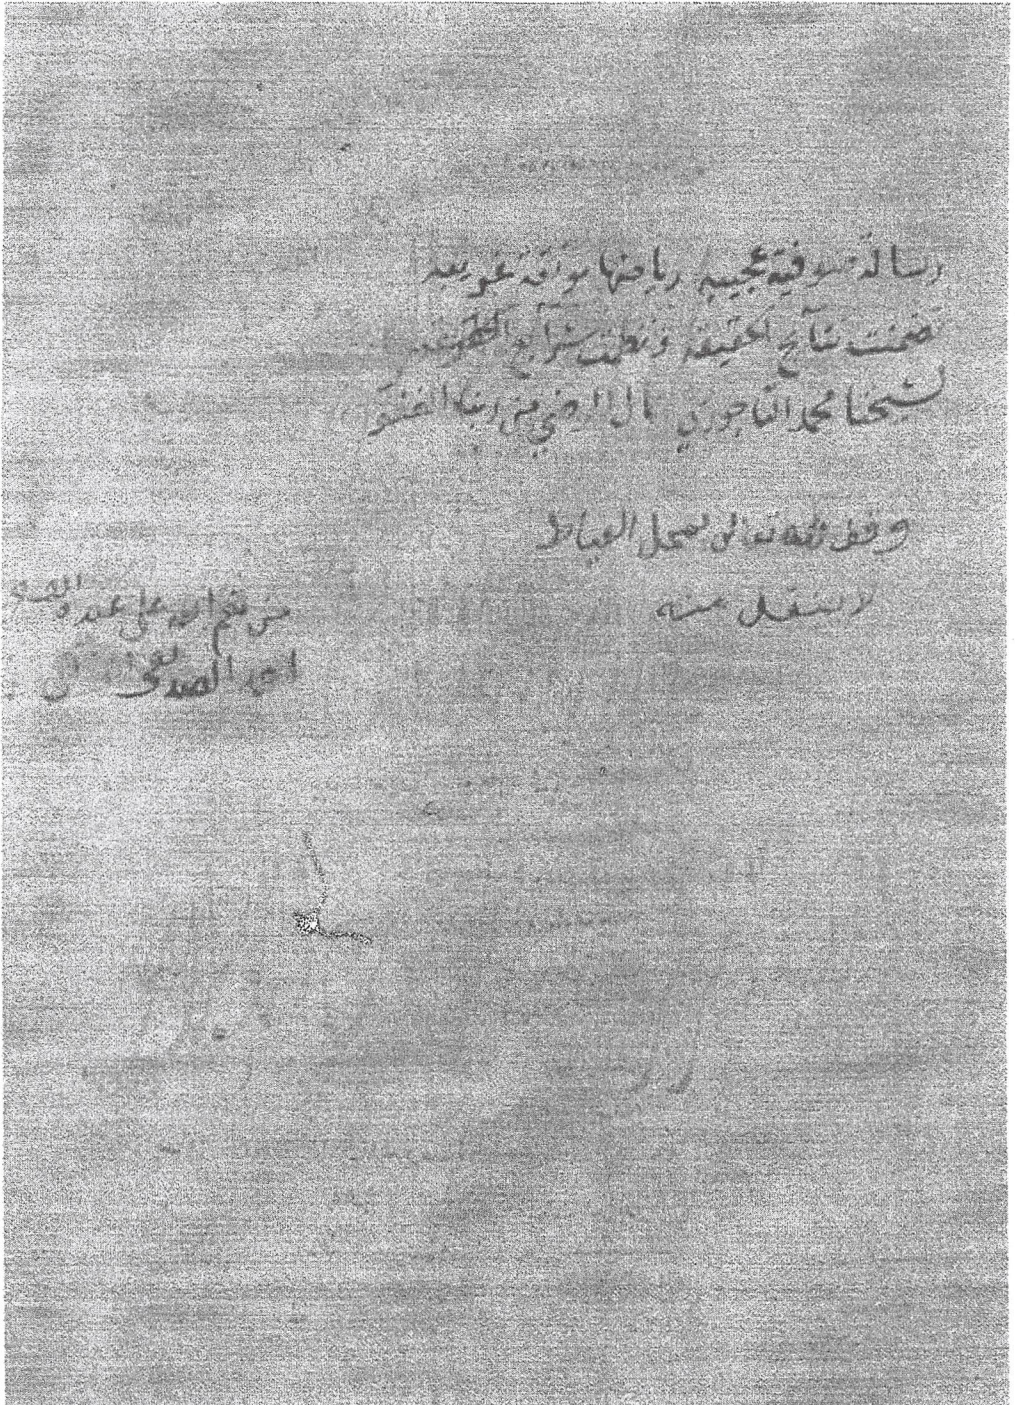 رسالة صوفية عجيبة رياضها مونقة غويعه
تضمنت نتآئج الحقيقة ونظمت شرآئع الطريقة
لشيخنا محمد التاجوري نال الرضى من ربنا الغفور
وقف لله تعالى لمحل العياط
لا ينقل عنه
من نعم الله على عبده
احمد الصد